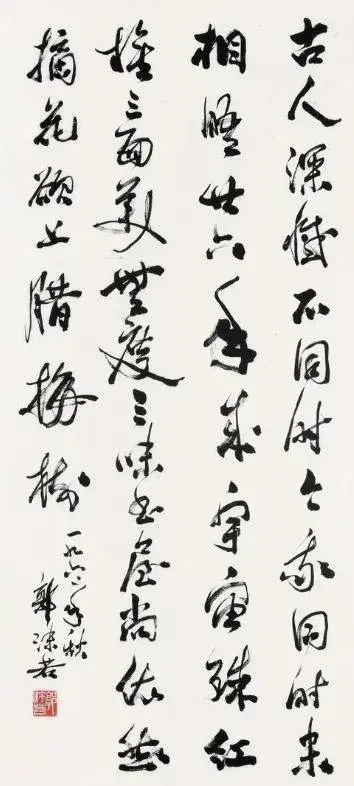 古人深憾不同时今我同时未
相晤廿六年来宇宙殊红
旗三面美無度三味书屋尚依然
摘花欲上腊梅树
一九六二年秋
郭沫若